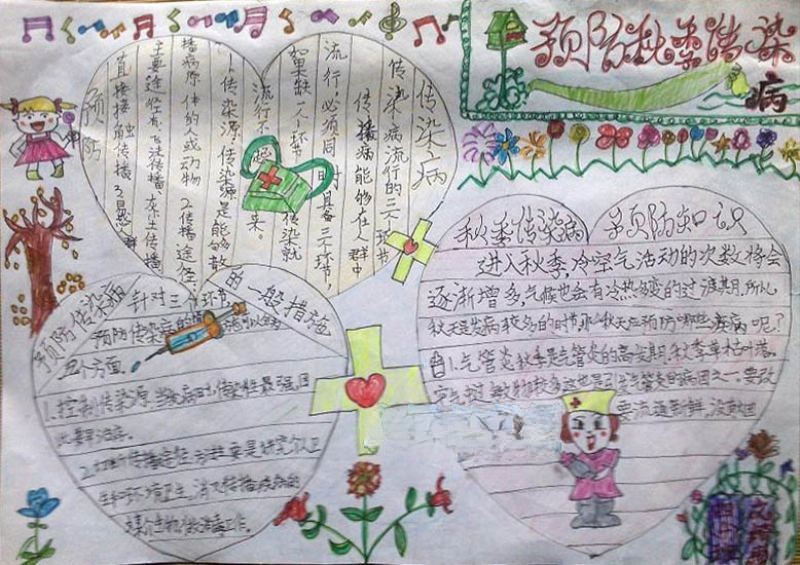 预防秋季传染
病
传染病
传染病流行的三个环节
传播病能够在人群中
流行,必须同时具备三个环节,
如果缺一个环节 传染就
流行不 起 来。
1传染源:传染源是能够散
播病原体的人或动物 2传播途径:
主要途径有飞沫传播、灰尘传播
直接接触传播 3易感 群
预防
秋季传染病 预防知识
进入秋季,冷空气活动的次数将会
逐渐增多,气候也会有冷热多变的过渡期,所以
秋天是发病较多的时节,那么秋天应预防哪些疾病呢?
1.气管炎秋季是气管炎的高发期,秋季草枯叶落。
空气 过敏物较多这也是引发气管炎的病因之一。要改
要流通新鲜,
预防传染病 的一般措施
针对三个环节
预防传染病的措施可以分为
三个方面。
1.控制传染源。当发病时,传染性最强,因
此要早治疗。
2.切断传播途径:方法主要是讲究个人卫
生和环境卫生。消灭传播疾病的
媒介生物,做消毒工作。